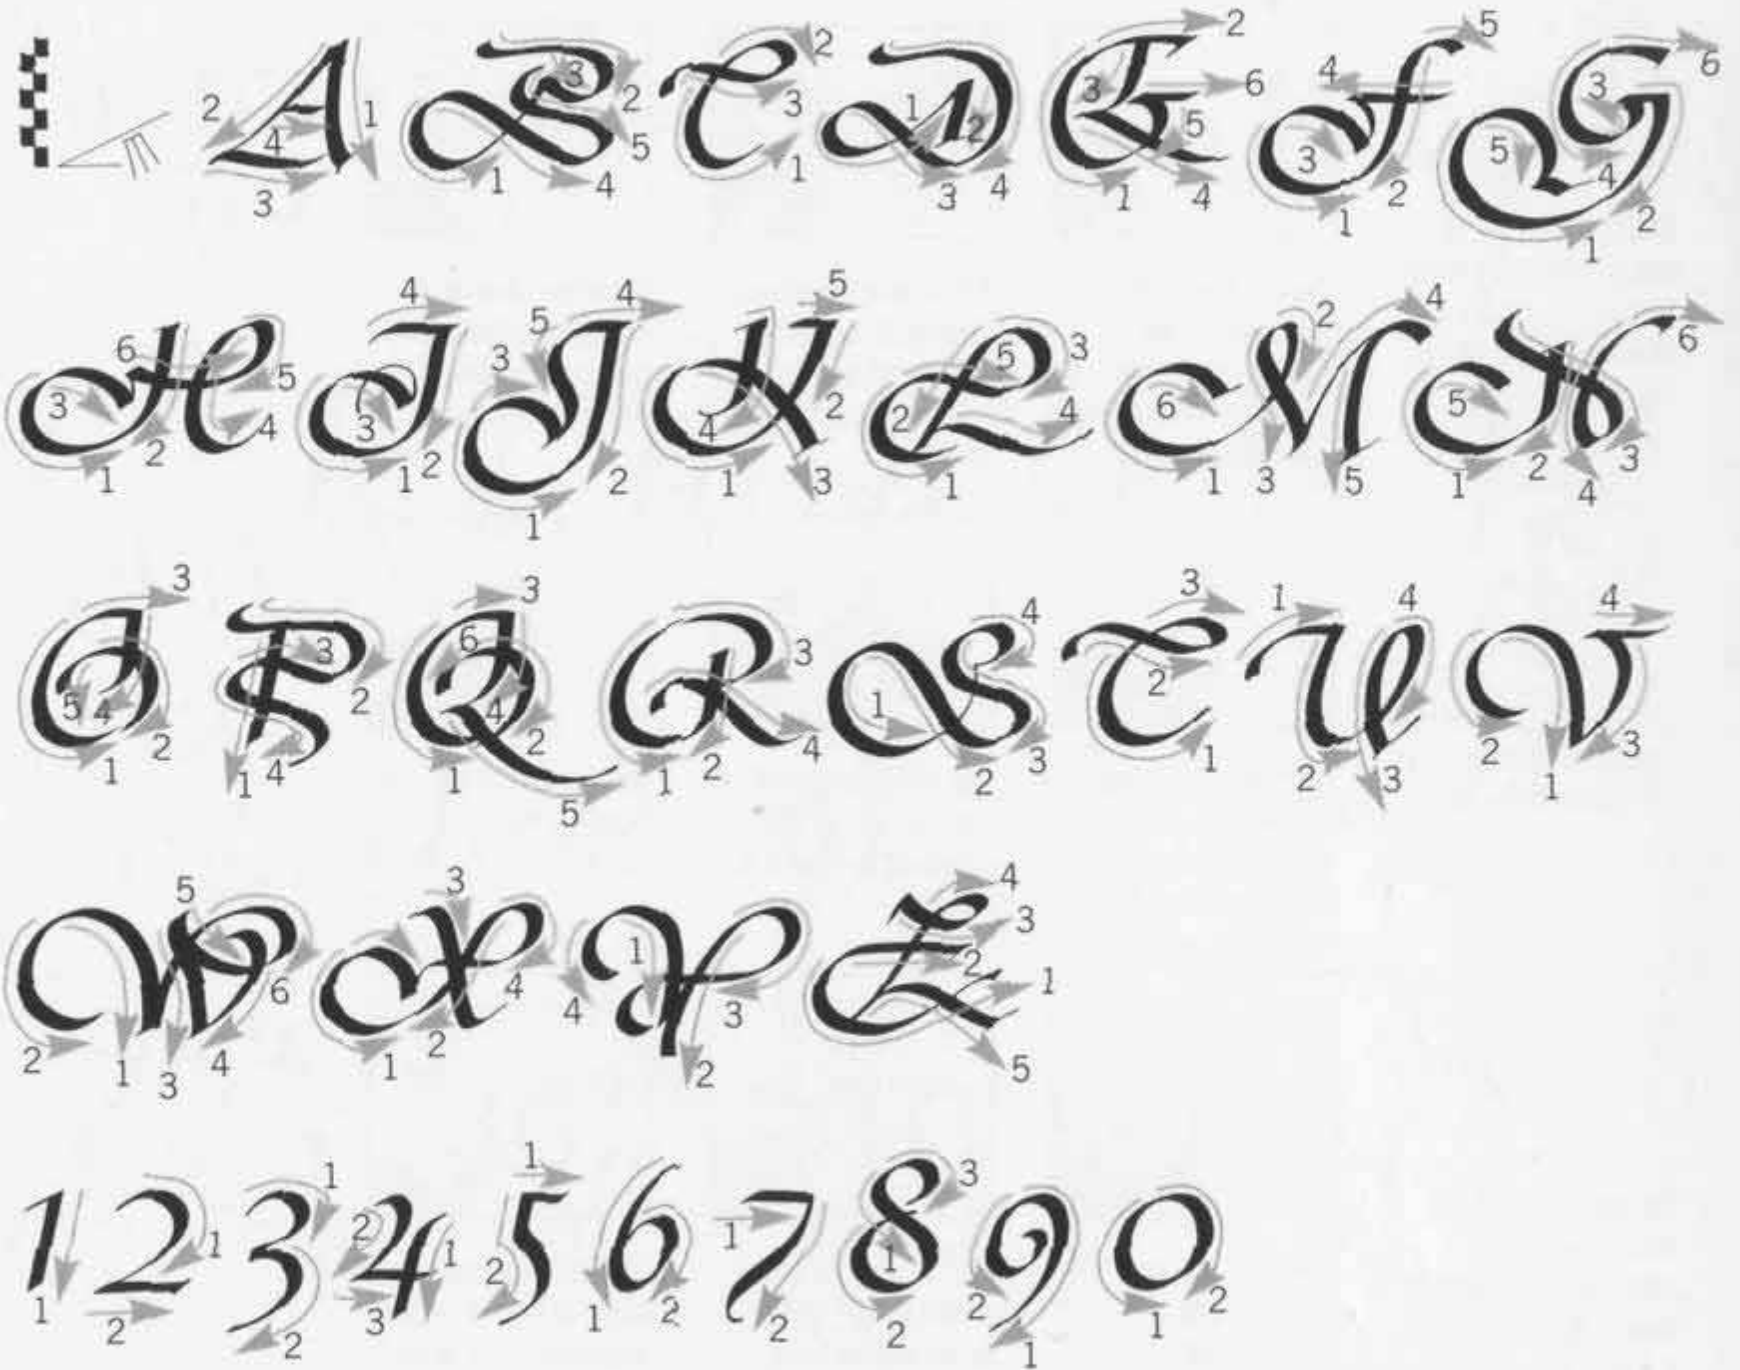 A B C D E F G
H I J K L M N
O P Q R S T U V
W X Y Z
1 2 3 4 5 6 7 8 9 0